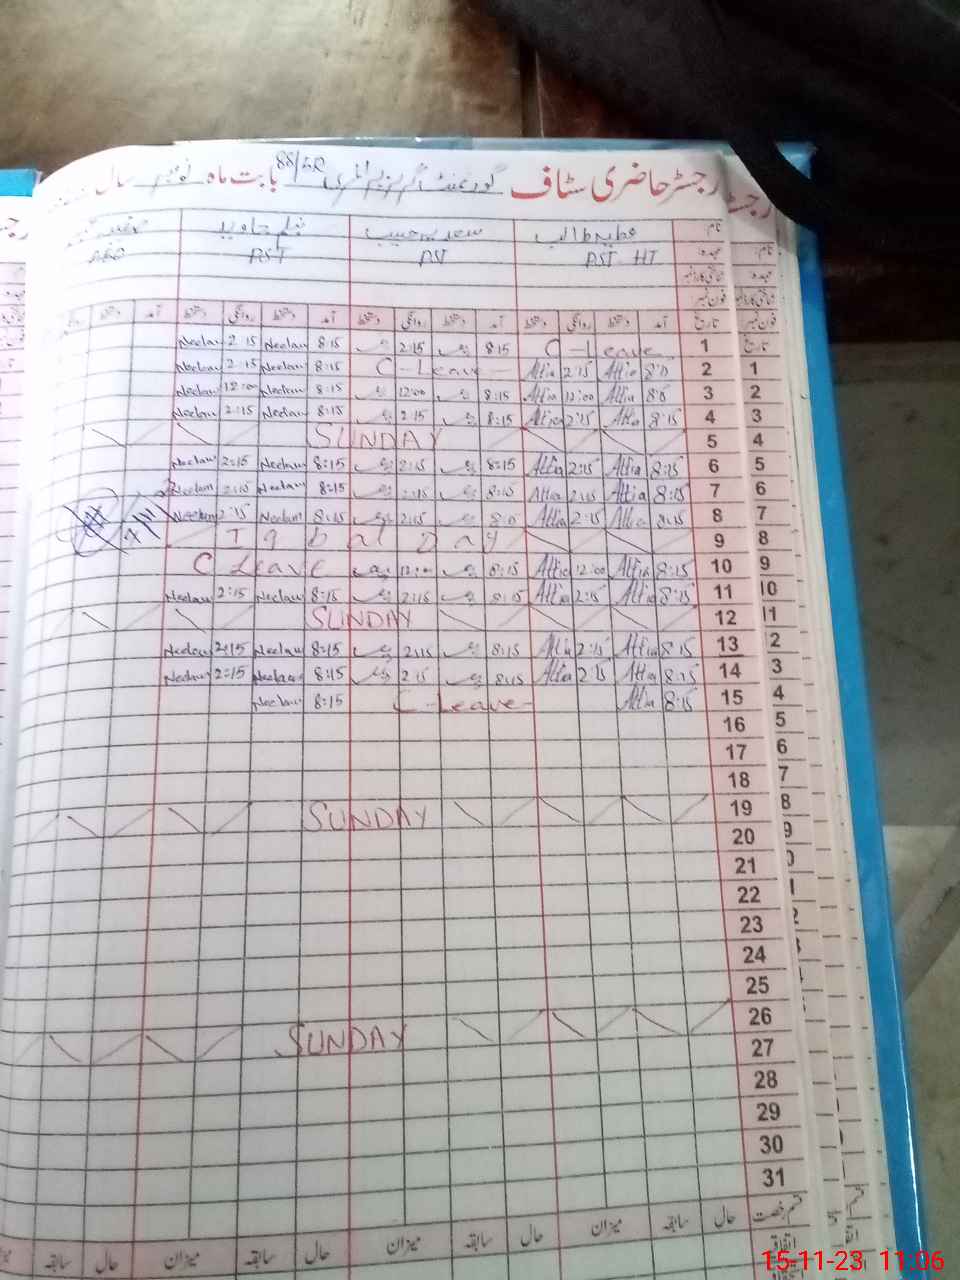 رجسٹر حاضری سٹاف گورنمنٹ گرلز پرائمری 88/4R بابت ماہ نومبر سال
نام عطیہ طالب سعدیہ حبیب نیلم جاوید
عہدہ PST-HT PST PST
شناختی کارڈ نمبر
فون نمبر
تاریخ آمد دستخط روانگی دستخط آمد دستخط روانگی دستخط آمد دستخط روانگی دستخط آمد دستخط
1 C-Leave 8:15 2:15 8:15 Neelam 2:15 Neelam
2 8:15 Attia 2:15 Attia C-Leave 8:15 Neelam 2:15 Neelam
3 8:15 Attia 12:00 Attia 8:15 12:00 8:15 Neelam 12:00 Neelam
4 8:15 Attia 2:15 Attia 8:15 2:15 8:15 Neelam 2:15 Neelam
5 SUNDAY
6 8:15 Attia 2:15 Attia 8:15 2:15 8:15 Neelam 2:15 Neelam
7 8:15 Attia 2:15 Attia 8:15 2:15 8:15 Neelam 2:15 Neelam
8 8:15 Attia 2:15 Attia 8:15 2:15 8:15 Neelam 2:15 Neelam
9 Iqbal Day
10 8:15 Attia 12:00 Attia 8:15 12:00 C Leave
11 8:15 Attia 2:15 Attia 8:15 2:15 8:15 Neelam 2:15 Neelam
12 SUNDAY
13 8:15 Attia 2:15 Attia 8:15 2:15 8:15 Neelam 2:15 Neelam
14 8:15 Attia 2:15 Attia 8:15 2:15 8:15 Neelam 2:15 Neelam
15 8:15 Attia C-Leave 8:15 Neelam
16
17
18
19 SUNDAY
20
21
22
23
24
25
26 SUNDAY
27
28
29
30
31
قسم رخصت حال سابقہ میزان حال سابقہ میزان حال سابقہ میزان حال سابقہ
اتفاقی
15-11-23 11:06